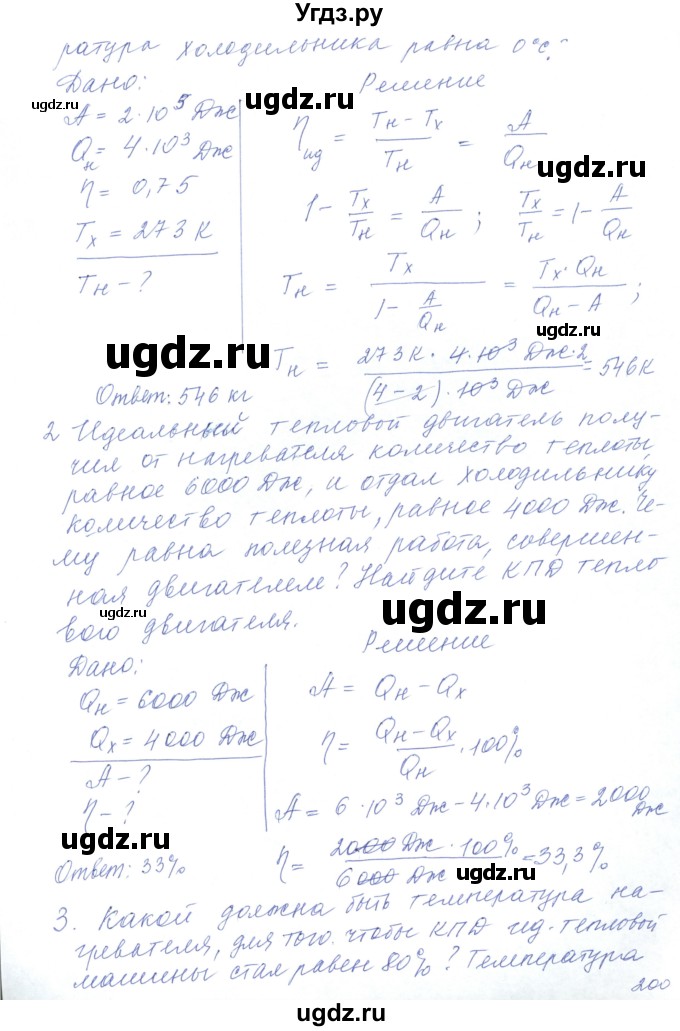 Угдз.ру
ратура холодильника равна 0°С.
Дано: Решение
A = 2·10⁵ Дж
Qн = 4·10³ Дж
η = 0,75
Tx = 273 К
Tн - ?
ηид = (Tн - Tx)/Tн = A/Qн
1 - Tx/Tн = A/Qн ; Tx/Tн = 1 - A/Qн
Tн = Tx/(1 - A/Qн) = Tx·Qн/(Qн - A) ;
Tн = 273К · 4·10³ Дж·2/((4-2)·10³ Дж) = 546К
Ответ: 546 кг
2 Идеальный тепловой двигатель полу-
чил от нагревателя количество теплоты,
равное 6000 Дж, и отдал холодильнику
количество теплоты, равное 4000 Дж. Че-
му равна полезная работа, совершен-
ная двигателем? Найдите КПД тепло
вого двигателя.
Дано: Решение
Qн = 6000 Дж
Qx = 4000 Дж
A - ?
η - ?
A = Qн - Qx
η = (Qн - Qx)/Qн · 100%
A = 6·10³ Дж - 4·10³ Дж = 2000 Дж
η = 2000 Дж · 100%/6000 Дж = 33,3%
Ответ: 33%
3. Какой должна быть температура на-
гревателя, для того чтобы КПД ид. тепловой
машины стал равен 80%? Температура
200
ugdz.ru
ugdz.ru
ugdz.ru
ugdz.ru
ugdz.ru
ugdz.ru
ugdz.ru
ugdz.ru
ugdz.ru
ugdz.ru
ugdz.ru
ugdz.ru
ugdz.ru
ugdz.ru